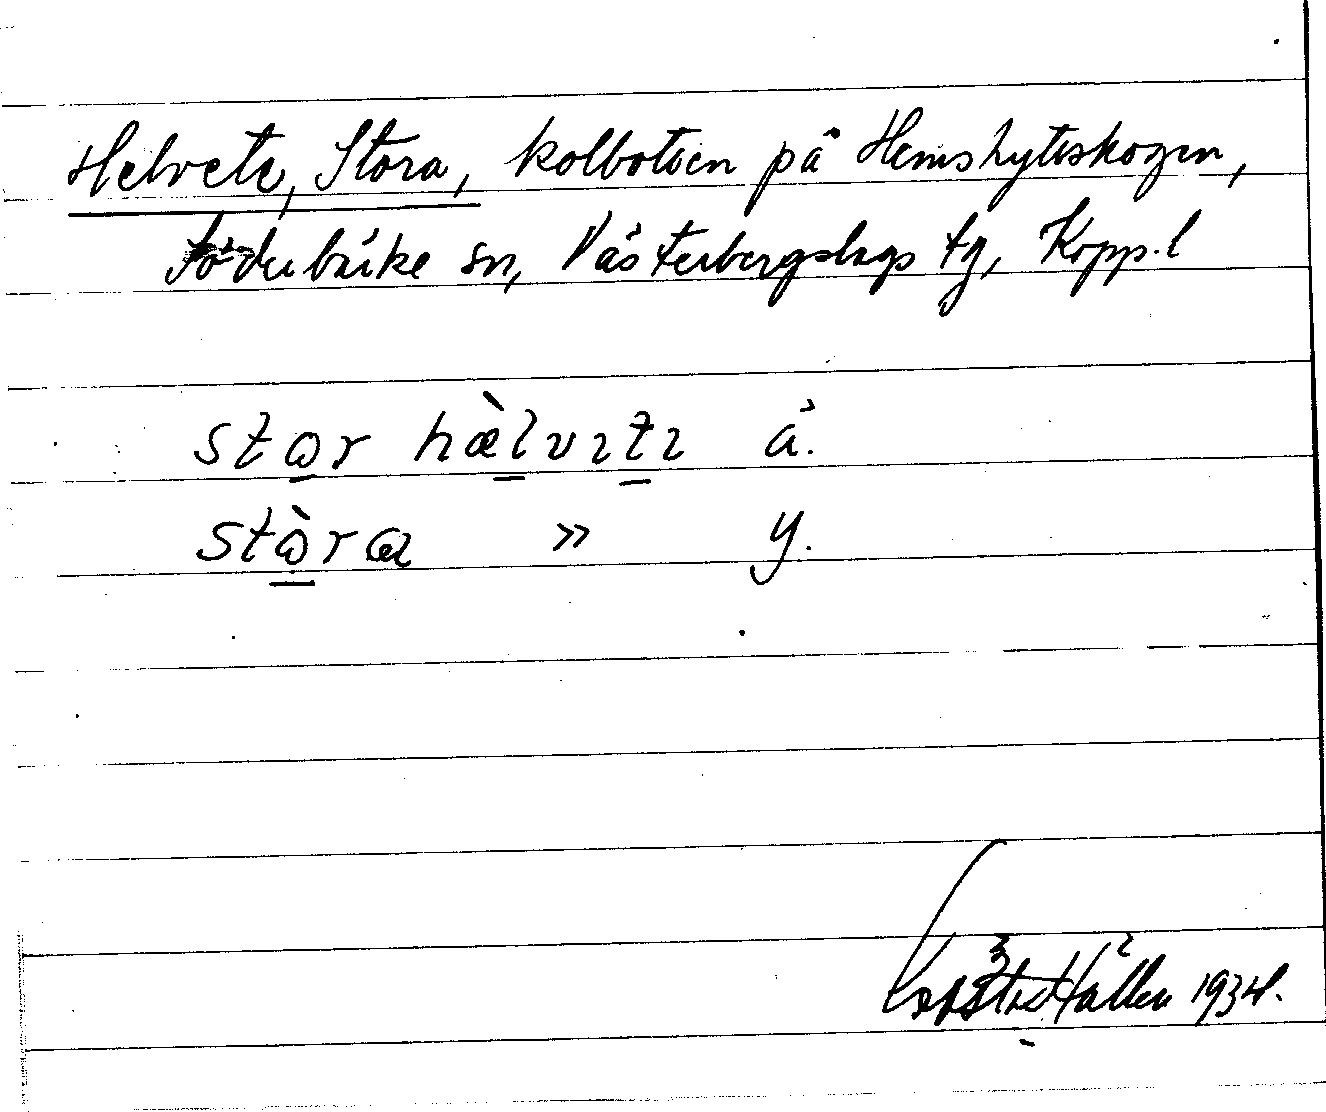 Helvete, Stora, kolbotten på Hemshytteskogen,
Söderbärke sn, Västerbergslags tg, Kopp. l
stɷr hæ̀lvıtı ä.
stɷ̀ra » y.
Hållen 1934.